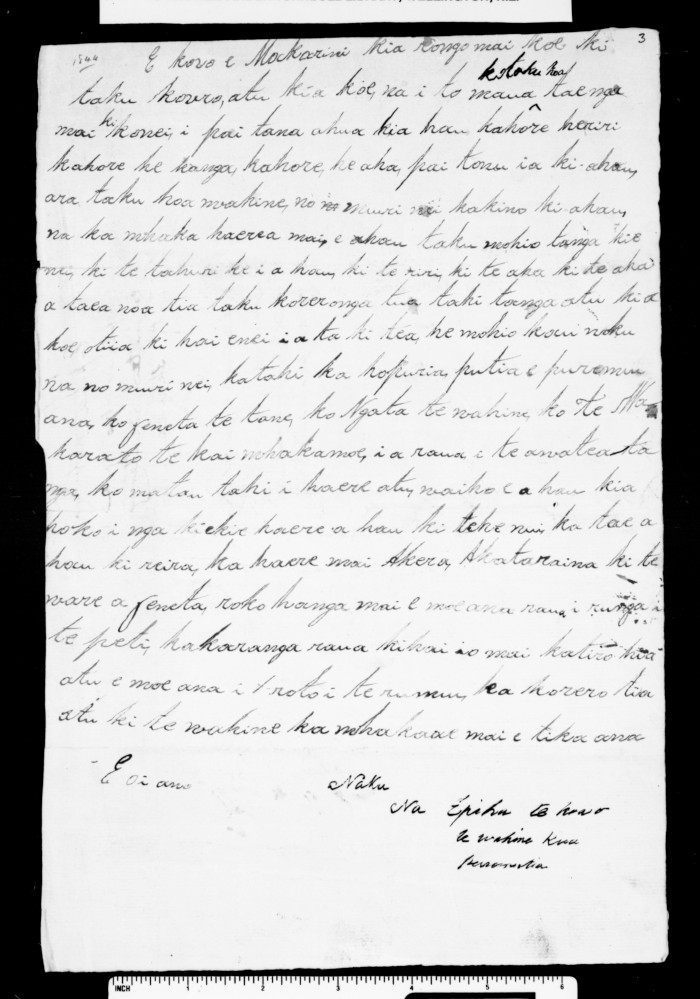 3
1844
E koro e Mackarini kia rongo mai koe ki
ko toku hoa
taku korero, atu kia koe, na i to maua taenga
mai ki konei, i pai tana ahua kia hau kahore he riri
kahore he kanga, kahore, he aha, pai tonu ia ki-ahau,
ara taku hoa wahine, no muri nei kakino ki-ahau,
na ka whaka haerea mai, e ahau taku mohio tanga kie
nei, ki te tahuri ke i a hau, ki te riri, ki te aha ki te aha
a taea noa tia taku koreronga tua tahi tanga atu ki a
koe, otiia ki hai enei i a ta ki tea, he mohio kau noku
na no muri nei, katahi ka hopukia, putia e puremu
ana, ko Jeneta te tane, ko Ngata te wahine, ko Te
karato te kai whakamoe, i a raua i te awatea ta
nga, ko matau tahi i haere atu, waiho e a hau kia
hoko i nga kiekie haere a hau ki tehe nui, ka tae a
hau ki reira, ka haere mai Akera, Akataraina ki te
ware a Jeneta, roko hanga mai e moe ana raua, i runga i
te peti, kakaranga raua kihai i o mai katiro hia
atu e moe ana i roto i te rumu, ka korero tia
atu ki te wahine ka whakaae mai e tika ana
E oi ano
Naku
Na Epiha te koro
te wahine kua
INCH 1 2 3 4 5 6